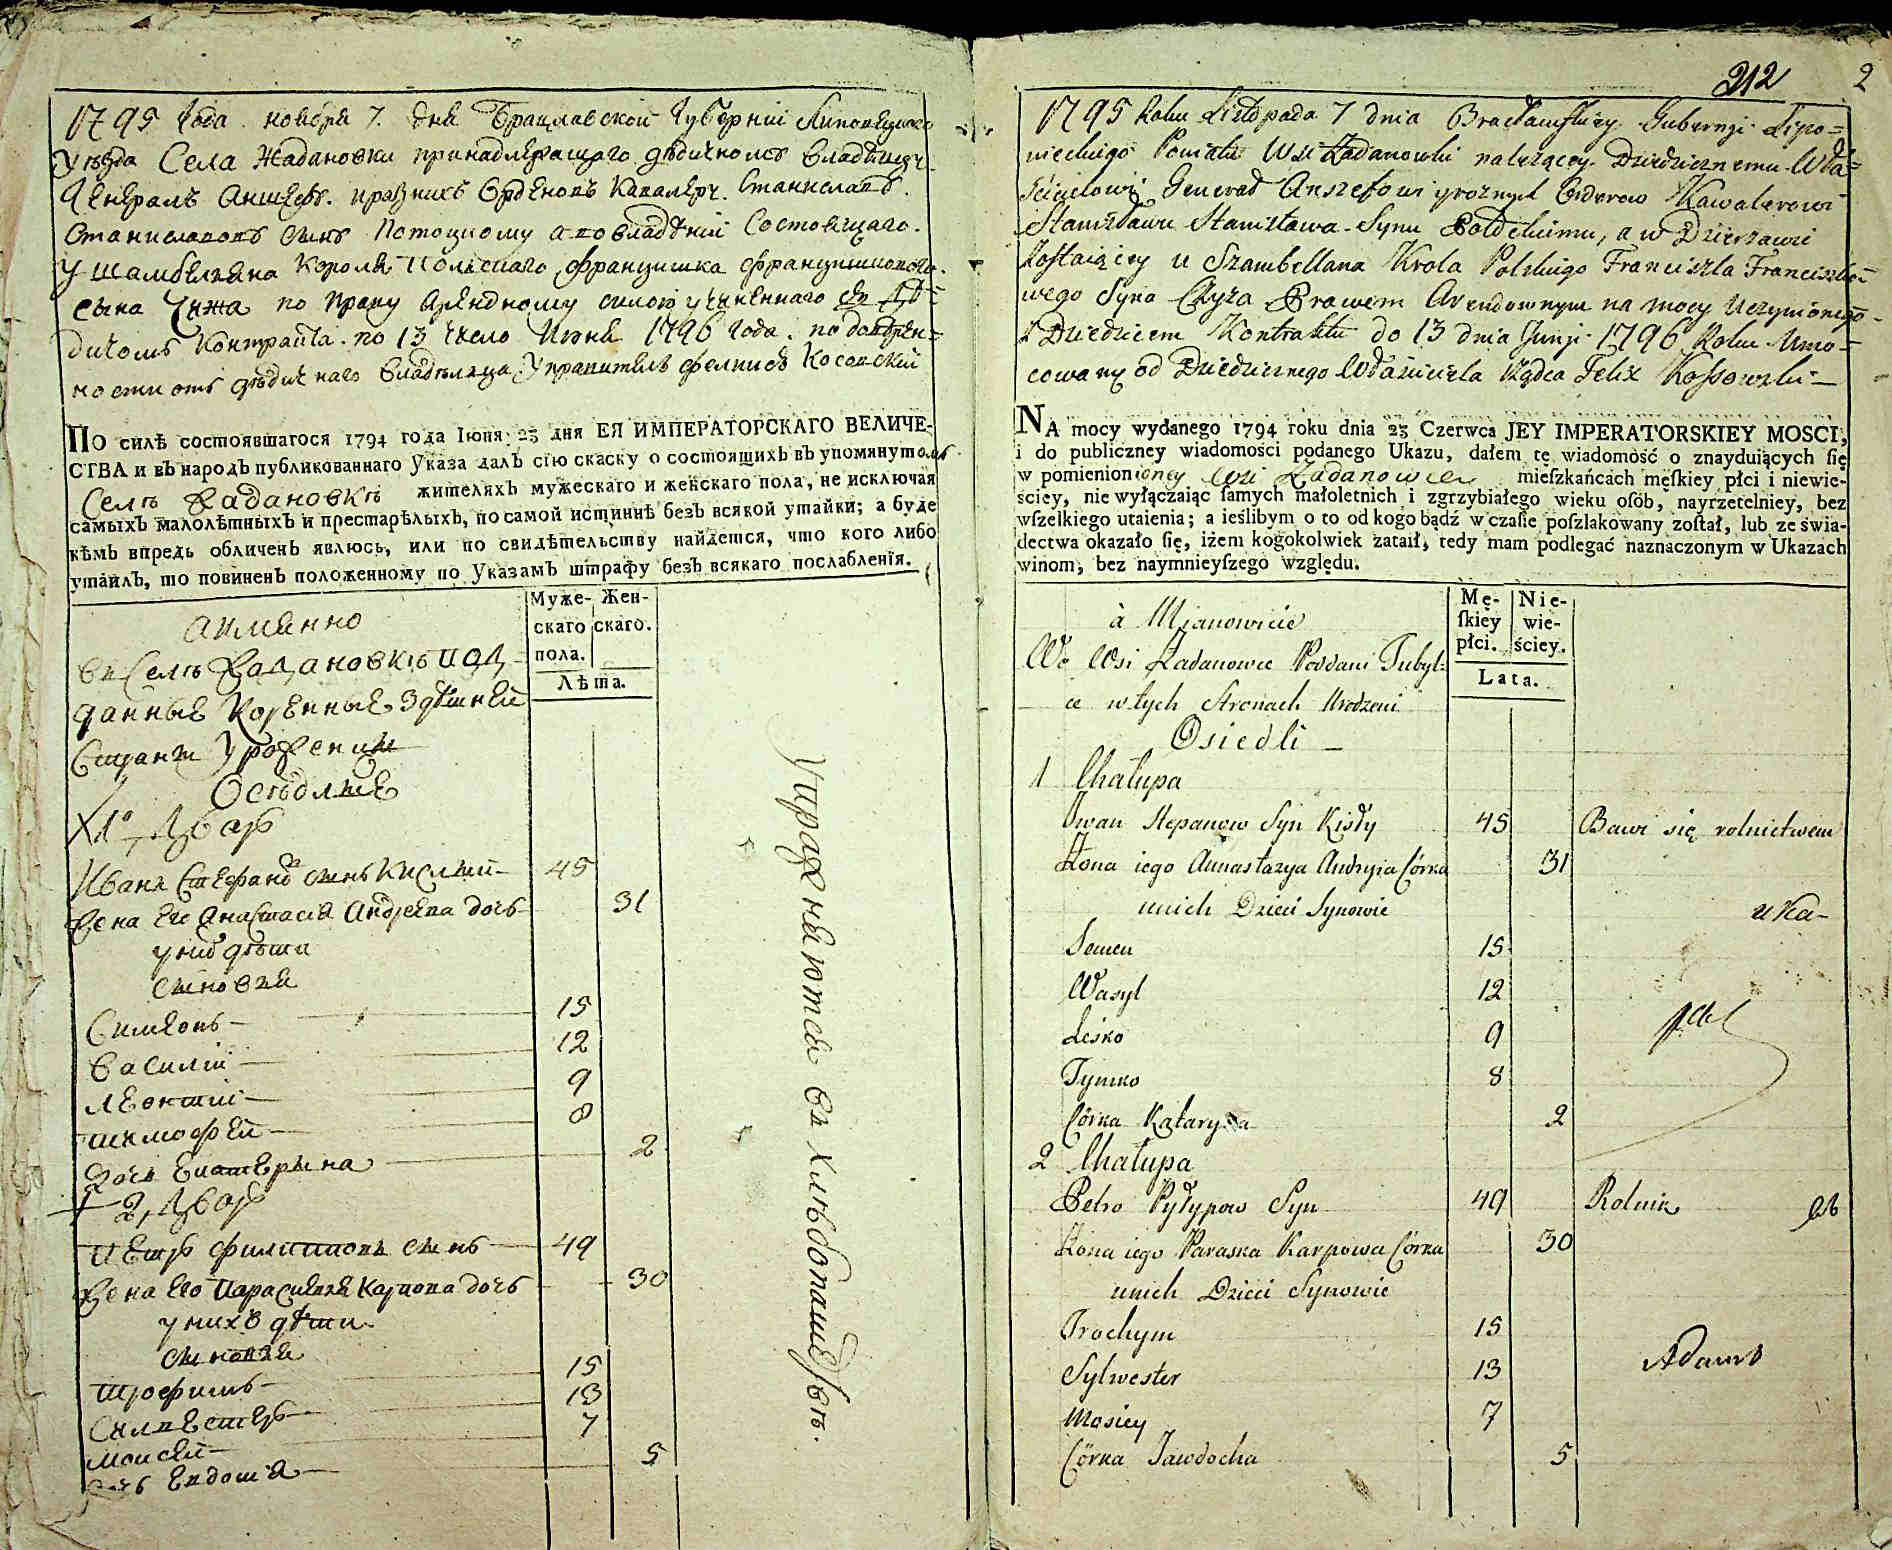 1795 Года ноября 7. дня Брацлавской Губерніи Липовецкаго
уезда Села Жадановки принадлежащаго дѣдичномъ владѣльцу
Генералъ Аншефъ. празныхъ Орденовъ Кавалеръ. Станиславъ.
Станиславовъ сынъ Потоцкому а во владѣніи Состоящаго.
У шамбеляна Короля Польскаго Францишка Францишковаго.
сына Чижа по праву Арендному силою учиненнаго
дичомъ Контракта. по 13 число Июня 1796 Года.
ности отъ дѣдичнаго владѣльца Управитель Феликсъ Косовский
По силѣ состоявшагося 1794 года Іюня 23 дня ЕЯ ИМПЕРАТОРСКАГО ВЕЛИЧЕ-
СТВА и въ народъ публикованнаго Указа далъ сію скаску о состоящихъ въ упомянутомъ
Селѣ Жадановкѣ жителяхъ мужескаго и женскаго пола, не исключая
самыхъ малолѣтныхъ и престарѣлыхъ, по самой истиннѣ безъ всякой утайки; а буде
кѣмъ впредь обличенъ явлюсь, или по свидѣтельству найдется, что кого либо
утаилъ, то повиненъ положенному по Указамъ штрафу безъ всякаго послабленія.
Муже- Жен-
скаго скаго.
пола.
Лѣта.
а имянно
въ Селѣ Жадановкѣ под
данные Коренные здѣшней
Страны Уроженцы
Оседлые
1 Дворъ
Иванъ Стефановъ сынъ Кислый 45
Жена Его Анастасія Андреева дочь 31
у нихъ дѣти
сыновья
Симеонъ 15
Василій 12
Леонтій 9
Тимофей 8
Дочь Екатерина 2
2, Дворъ
Петръ Филиповъ сынъ 49
Жена его Парасковья Карпова дочь 30
у нихъ дѣти
сыновья
Трофимъ 15
Силвестеръ 13
Моисей 7
дочь Евдокія 5
Упражняются въ хлѣбопашествѣ.
212 2
1795 Roku Listopada 7 dnia Bracławskiey Gubernji Lipo=
wieckiego Powiatu Wsi Żadanowki należącey Dziedzicznemu Wła=
ścicielowi Generał Anszefowi y roznych Orderow Kawalerowi
Stanisławu Stanisława Synu Potockiemu, a w Dzierżawie
Zostaiącey u Szambellana Krola Polskiego Franciszka Franciszko=
wego Syna Czyża Prawem Arendownym na mocy Uczynionego
z Dziedzicem Kontraktu do 13 dnia Junji 1796 Roku Umo=
cowany od Dziedzicznego Właściciela Rządca Felix Kossowski
NA mocy wydanego 1794 roku dnia 23 Czerwca JEY IMPERATORSKIEY MOSCI,
i do publiczney wiadomości podanego Ukazu, dałem tę wiadomość o znayduiących się
w pomienioney Wsi Żadanowce mieſzkańcach męſkiey płci i niewie-
ściey, nie wyłączaiąc ſamych małoletnich i zgrzybiałego wieku oſób, nayrzetelniey, bez
wſzelkiego utaienia; a ieślibym o to od kogo bądź w czaſie poſzlakowany zoſtał, lub ze świa-
dectwa okazało ſię, iżem kogokolwiek zataił, tedy mam podlegać naznaczonym w Ukazach
winom, bez naymnieyſzego względu.
Mę- Nie-
ſkiey wie-
płci. ściey.
Lata.
à Mianowicie
We Wsi Żadanowce Poddani Tubyl=
ce w tych Stronach Urodzeni
Osiedli
1 Chałupa
Iwan Stepanow Syn Kisły 45 Bawi się rolnictwem
Żona iego Annastazya Andryia Córka 31
unich Dzieci Synowie
Semen 15
Wasyl 12
Leśko 9
Tymko 8
Córka Kataryna 2
2 Chałupa
Petro Pyłypow Syn 49 Rolnik
Żona iego Paraska Karpowa Córka 30
unich Dzieci Synowie
Trochym 15
Sylwester 13
Mosiey 7
Córka Jawdocha 5